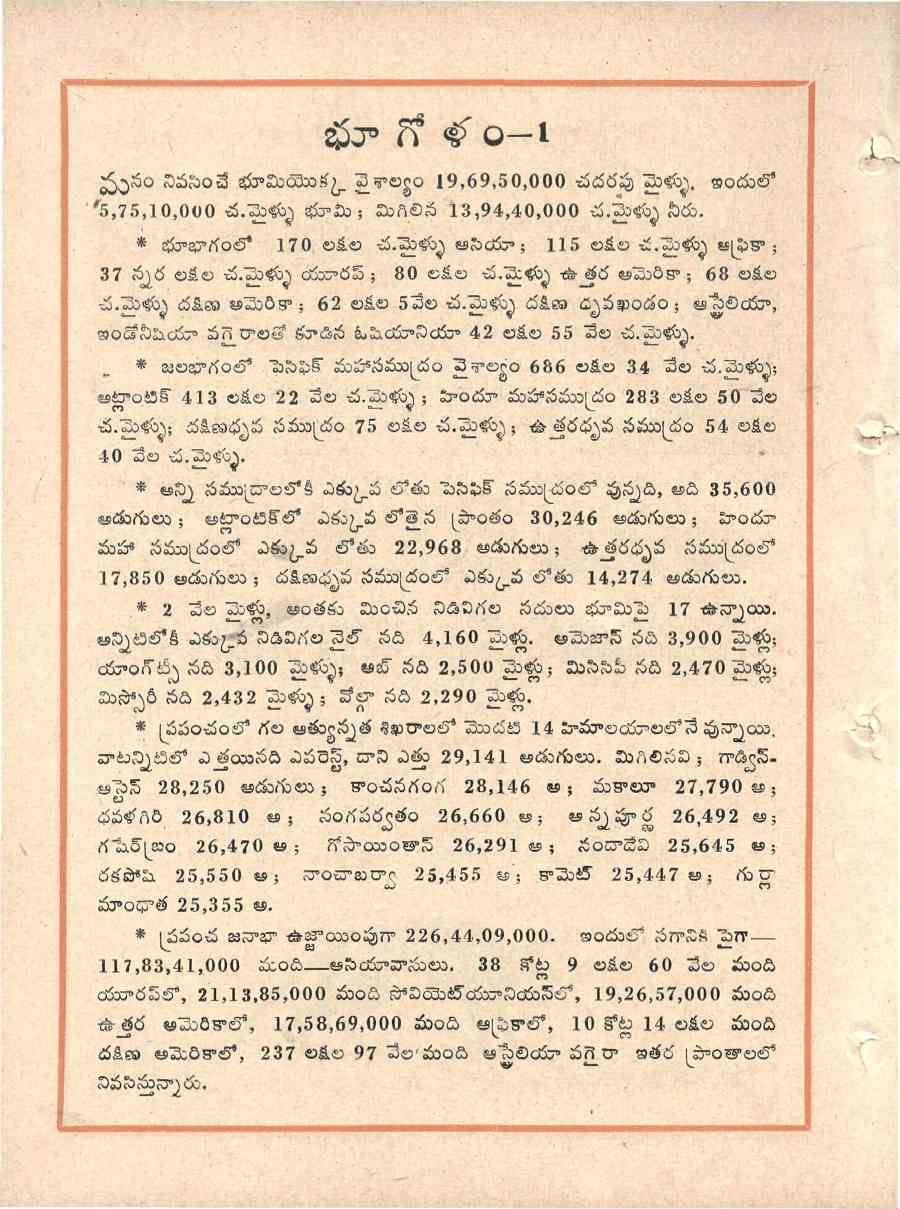 భూ గో ళ ం—1
మనం నివసించే భూమియొక్క వైశాల్యం 19,69,50,000 చదరపు మైళ్ళు. ఇందులో
5,75,10,000 చ.మైళ్ళు భూమి; మిగిలిన 13,94,40,000 చ.మైళ్ళు నీరు.
* భూభాగంలో 170 లక్షల చ.మైళ్ళు ఆసియా; 115 లక్షల చ.మైళ్ళు ఆఫ్రికా;
37 న్నర లక్షల చ.మైళ్ళు యూరప్; 80 లక్షల చ.మైళ్ళు ఉత్తర అమెరికా; 68 లక్షల
చ.మైళ్ళు దక్షిణ అమెరికా; 62 లక్షల 5వేల చ.మైళ్ళు దక్షిణ ధృవఖండం; ఆస్ట్రేలియా,
ఇండోనీషియా వగైరాలతో కూడిన ఓషియానియా 42 లక్షల 55 వేల చ.మైళ్ళు.
* జలభాగంలో పెసిఫిక్ మహాసముద్రం వైశాల్యం 686 లక్షల 34 వేల చ.మైళ్ళు;
అట్లాంటిక్ 413 లక్షల 22 వేల చ.మైళ్ళు; హిందూ మహాసముద్రం 283 లక్షల 50 వేల
చ.మైళ్ళు; దక్షిణధృవ సముద్రం 75 లక్షల చ.మైళ్ళు; ఉత్తరధృవ సముద్రం 54 లక్షల
40 వేల చ.మైళ్ళు.
* అన్ని సముద్రాలలోకీ ఎక్కువ లోతు పెసిఫిక్ సముద్రంలో వున్నది, అది 35,600
అడుగులు; అట్లాంటిక్‌లో ఎక్కువ లోతైన ప్రాంతం 30,246 అడుగులు; హిందూ
మహా సముద్రంలో ఎక్కువ లోతు 22,968 అడుగులు; ఉత్తరధృవ సముద్రంలో
17,850 అడుగులు; దక్షిణధృవ సముద్రంలో ఎక్కువ లోతు 14,274 అడుగులు.
* 2 వేల మైళ్లు, అంతకు మించిన నిడివిగల నదులు భూమిపై 17 ఉన్నాయి.
అన్నిటిలోకీ ఎక్కువ నిడివిగల నైల్ నది 4,160 మైళ్లు. అమెజాన్ నది 3,900 మైళ్లు;
యాంగ్‌ట్సీ నది 3,100 మైళ్ళు; అబ్ నది 2,500 మైళ్లు; మిసిసిపీ నది 2,470 మైళ్లు;
మిస్సోరీ నది 2,432 మైళ్ళు; వోల్గా నది 2,290 మైళ్లు.
* ప్రపంచంలో గల అత్యున్నత శిఖరాలలో మొదటి 14 హిమాలయాలలోనే వున్నాయి.
వాటన్నిటిలో ఎత్తయినది ఎవరెస్ట్, దాని ఎత్తు 29,141 అడుగులు. మిగిలినవి; గాడ్విన్-
ఆస్టెన్ 28,250 అడుగులు; కాంచనగంగ 28,146 అ; మకాలూ 27,790 అ;
ధవళగిరి 26,810 అ; నంగపర్వతం 26,660 అ; అన్నపూర్ణ 26,492 అ;
గషేర్‌బ్రం 26,470 అ; గోసాయింతాన్ 26,291 అ; నందాదేవి 25,645 అ;
రకపోషి 25,550 అ; నాంచాబర్వా 25,455 అ; కామెట్ 25,447 అ; గుర్లా
మాంధాత 25,355 అ.
* ప్రపంచ జనాభా ఉజ్జాయింపుగా 226,44,09,000. ఇందులో సగానికి పైగా—
117,83,41,000 మంది—ఆసియావాసులు. 38 కోట్ల 9 లక్షల 60 వేల మంది
యూరప్‌లో, 21,13,85,000 మంది సోవియెట్‌యూనియన్‌లో, 19,26,57,000 మంది
ఉత్తర అమెరికాలో, 17,58,69,000 మంది ఆఫ్రికాలో, 10 కోట్ల 14 లక్షల మంది
దక్షిణ అమెరికాలో, 237 లక్షల 97 వేల మంది ఆస్ట్రేలియా వగైరా ఇతర ప్రాంతాలలో
నివసిస్తున్నారు.